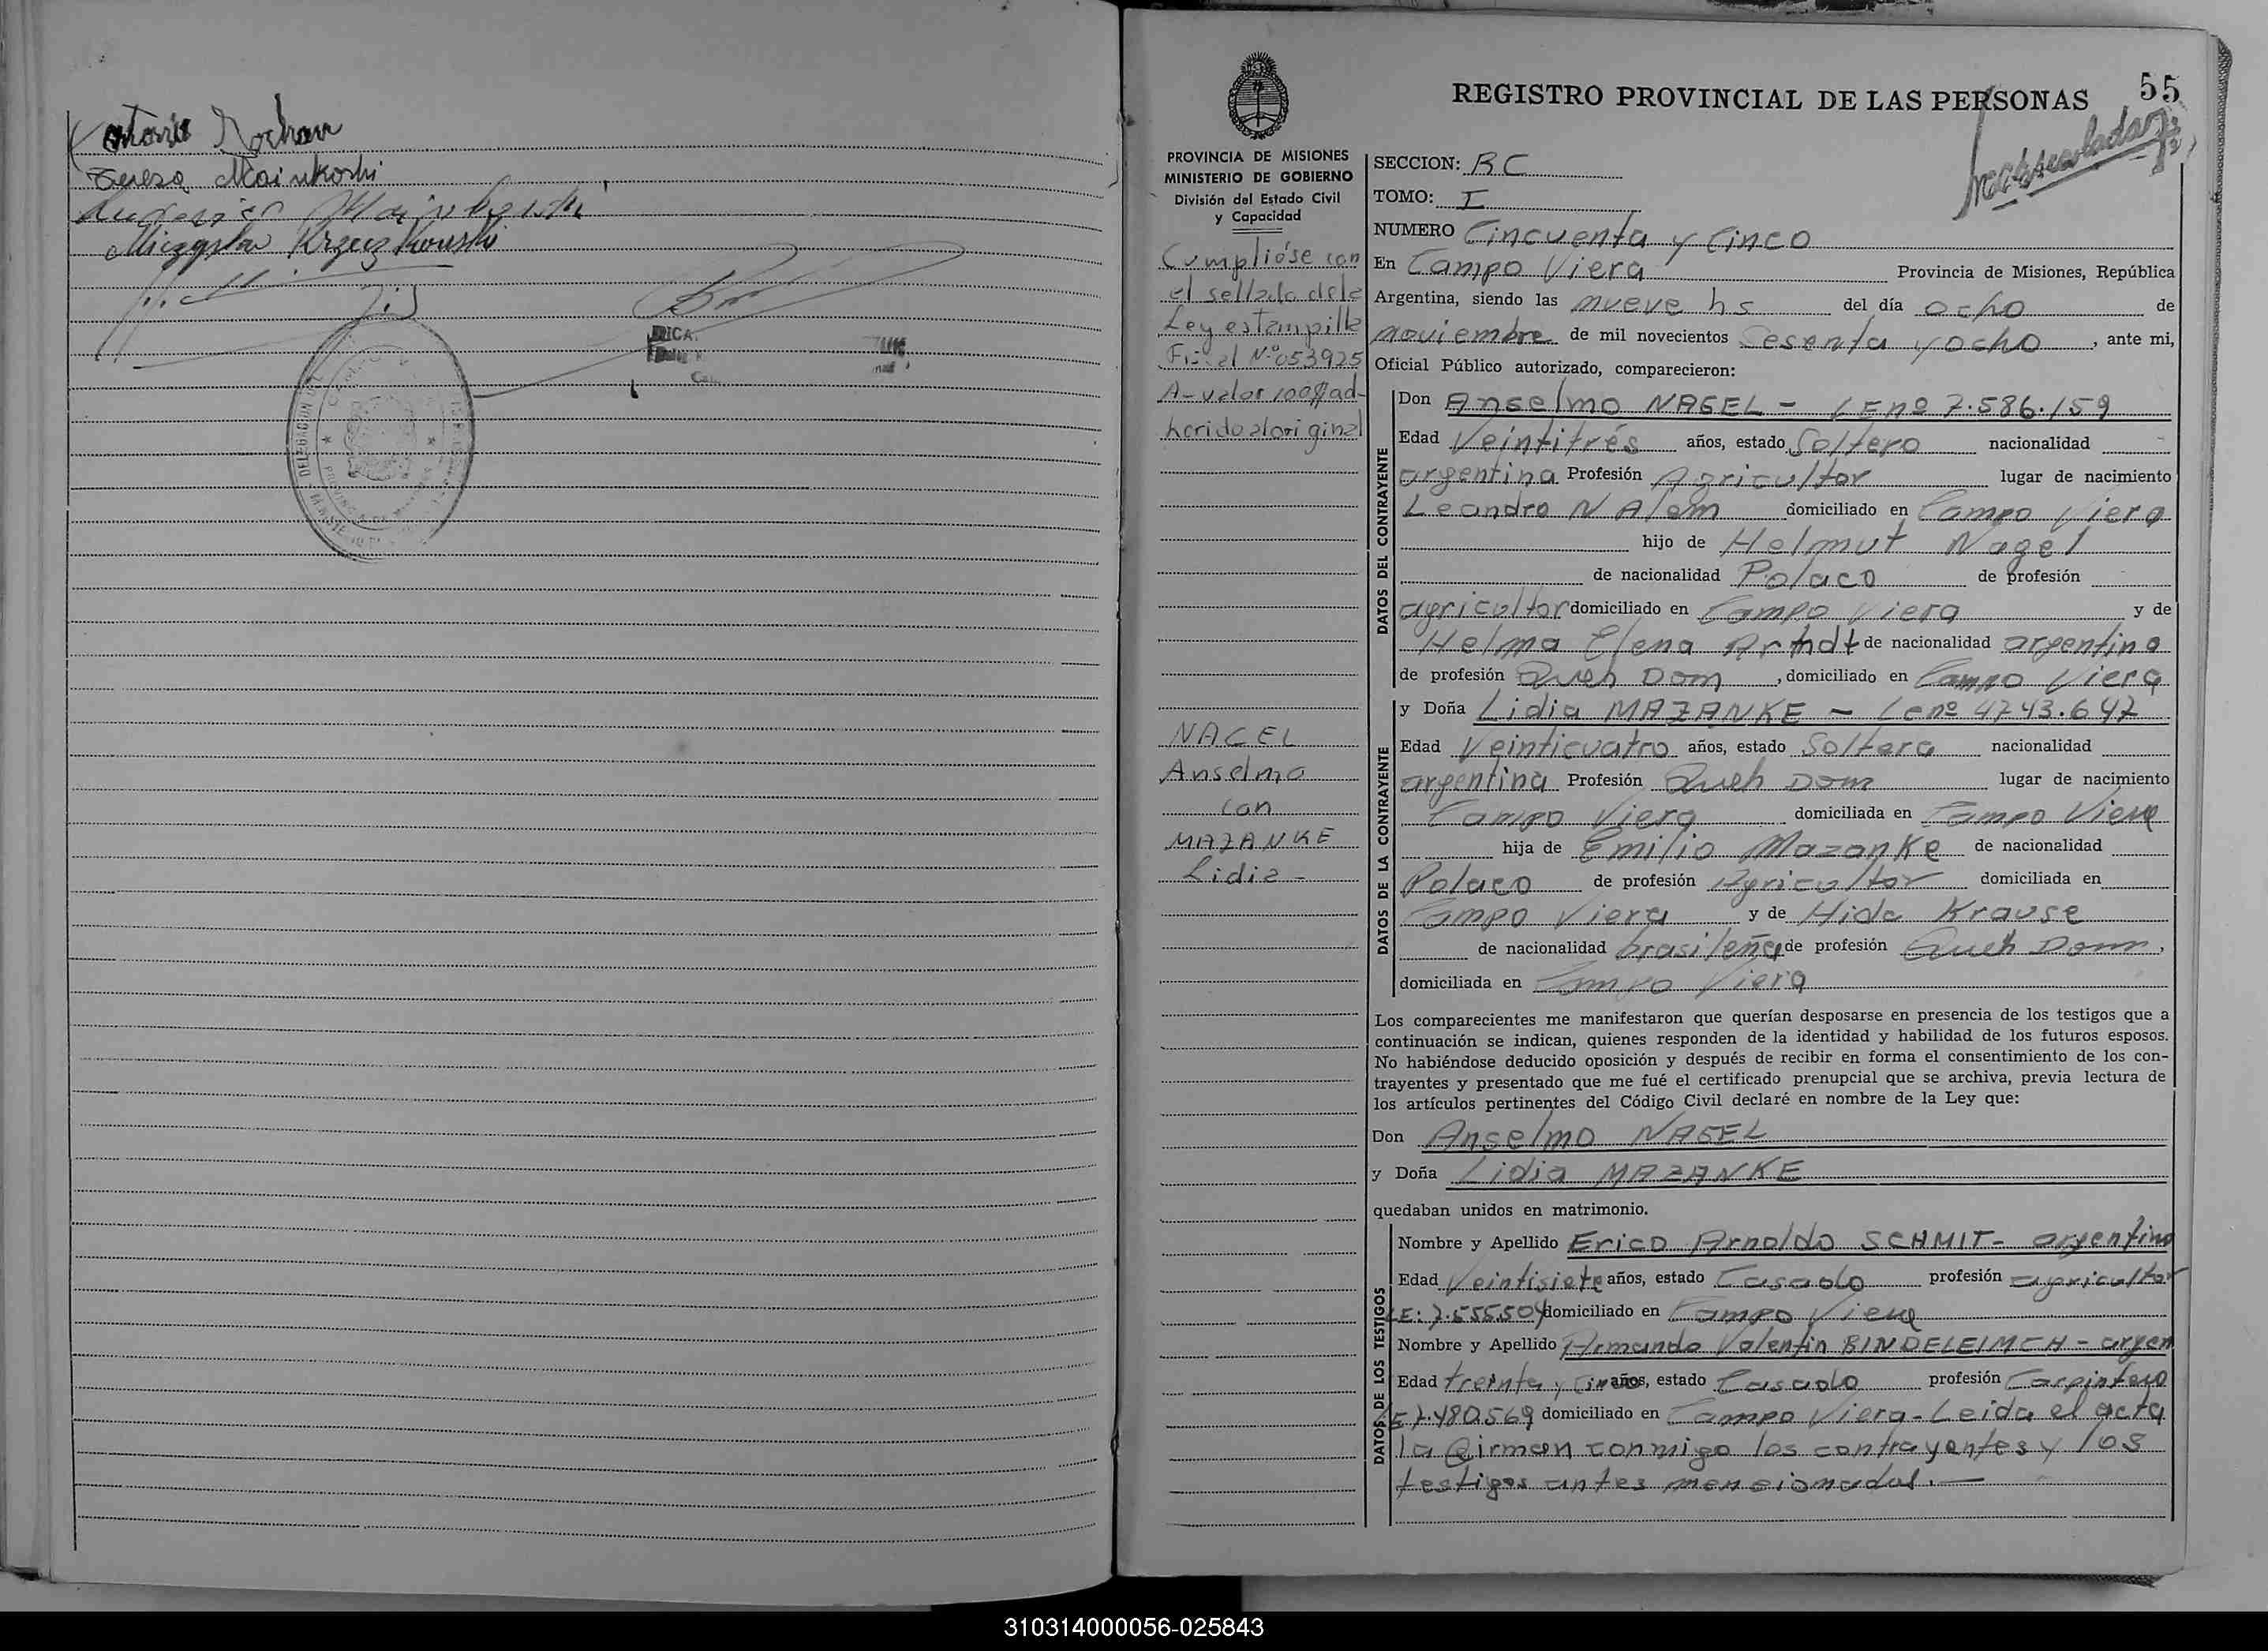 Antonio Rochan
Teresa Mainkoski
Miezyslaw Krzeczkowski
55
REGISTRO PROVINCIAL DE LAS PERSONAS
PROVINCIA DE MISIONES
MINISTERIO DE GOBIERNO
División del Estado Civil
y Capacidad
Cumplióse con
el sellado de la
Ley estampilla
Fiscal Nº 053925
A-valor 100$ ad-
herido al original
NAGEL
Anselmo
con
MAZANKE
Lidia -
SECCION: RC
TOMO: I
NUMERO Cincuenta y Cinco
En Campo Viera Provincia de Misiones, República
Argentina, siendo las nueve hs del día ocho de
noviembre de mil novecientos Sesenta y ocho, ante mi,
Oficial Público autorizado, comparecieron:
DATOS DEL CONTRAYENTE
Don Anselmo NAGEL - LE nº 7.586.159
Edad Veintitrés años, estado Soltero nacionalidad
argentina Profesión Agricultor lugar de nacimiento
Leandro N Alem domiciliado en Campo Viera
hijo de Helmut Nagel
de nacionalidad Polaco de profesión
agricultor domiciliado en Campo Viera y de
Helma Elena Arndt de nacionalidad argentina
de profesión Queh Dom, domiciliado en Campo Viera
DATOS DE LA CONTRAYENTE
y Doña Lidia MAZANKE - Le nº 4743.647
Edad Veinticuatro años, estado Soltera nacionalidad
argentina Profesión Queh Dom lugar de nacimiento
Campo Viera domiciliada en Campo Viera
hija de Emilio Mazanke de nacionalidad
Polaco de profesión Agricultor domiciliada en
Campo Viera y de Hida Krause
de nacionalidad brasileña de profesión Queh Dom,
domiciliada en Campo Viera
Los comparecientes me manifestaron que querían desposarse en presencia de los testigos que a
continuación se indican, quienes responden de la identidad y habilidad de los futuros esposos.
No habiéndose deducido oposición y después de recibir en forma el consentimiento de los con-
trayentes y presentado que me fué el certificado prenupcial que se archiva, previa lectura de
los artículos pertinentes del Código Civil declaré en nombre de la Ley que:
Don Anselmo NAGEL
y Doña Lidia MAZANKE
quedaban unidos en matrimonio.
DATOS DE LOS TESTIGOS
Nombre y Apellido Erico Arnoldo SCHMIT- argentino
Edad Veintisiete años, estado Casado profesión agricultor
LE: 7.555504 domiciliado en Campo Viera
Nombre y Apellido Armando Valentin BINDELEIMCH - argen
Edad treinta y Cinco años, estado Casado profesión Carpintero
LE 7.480.569 domiciliado en Campo Viera - Leida el acta
la firman conmigo los contrayentes y los
testigos antes mencionados.-
310314000056-025843